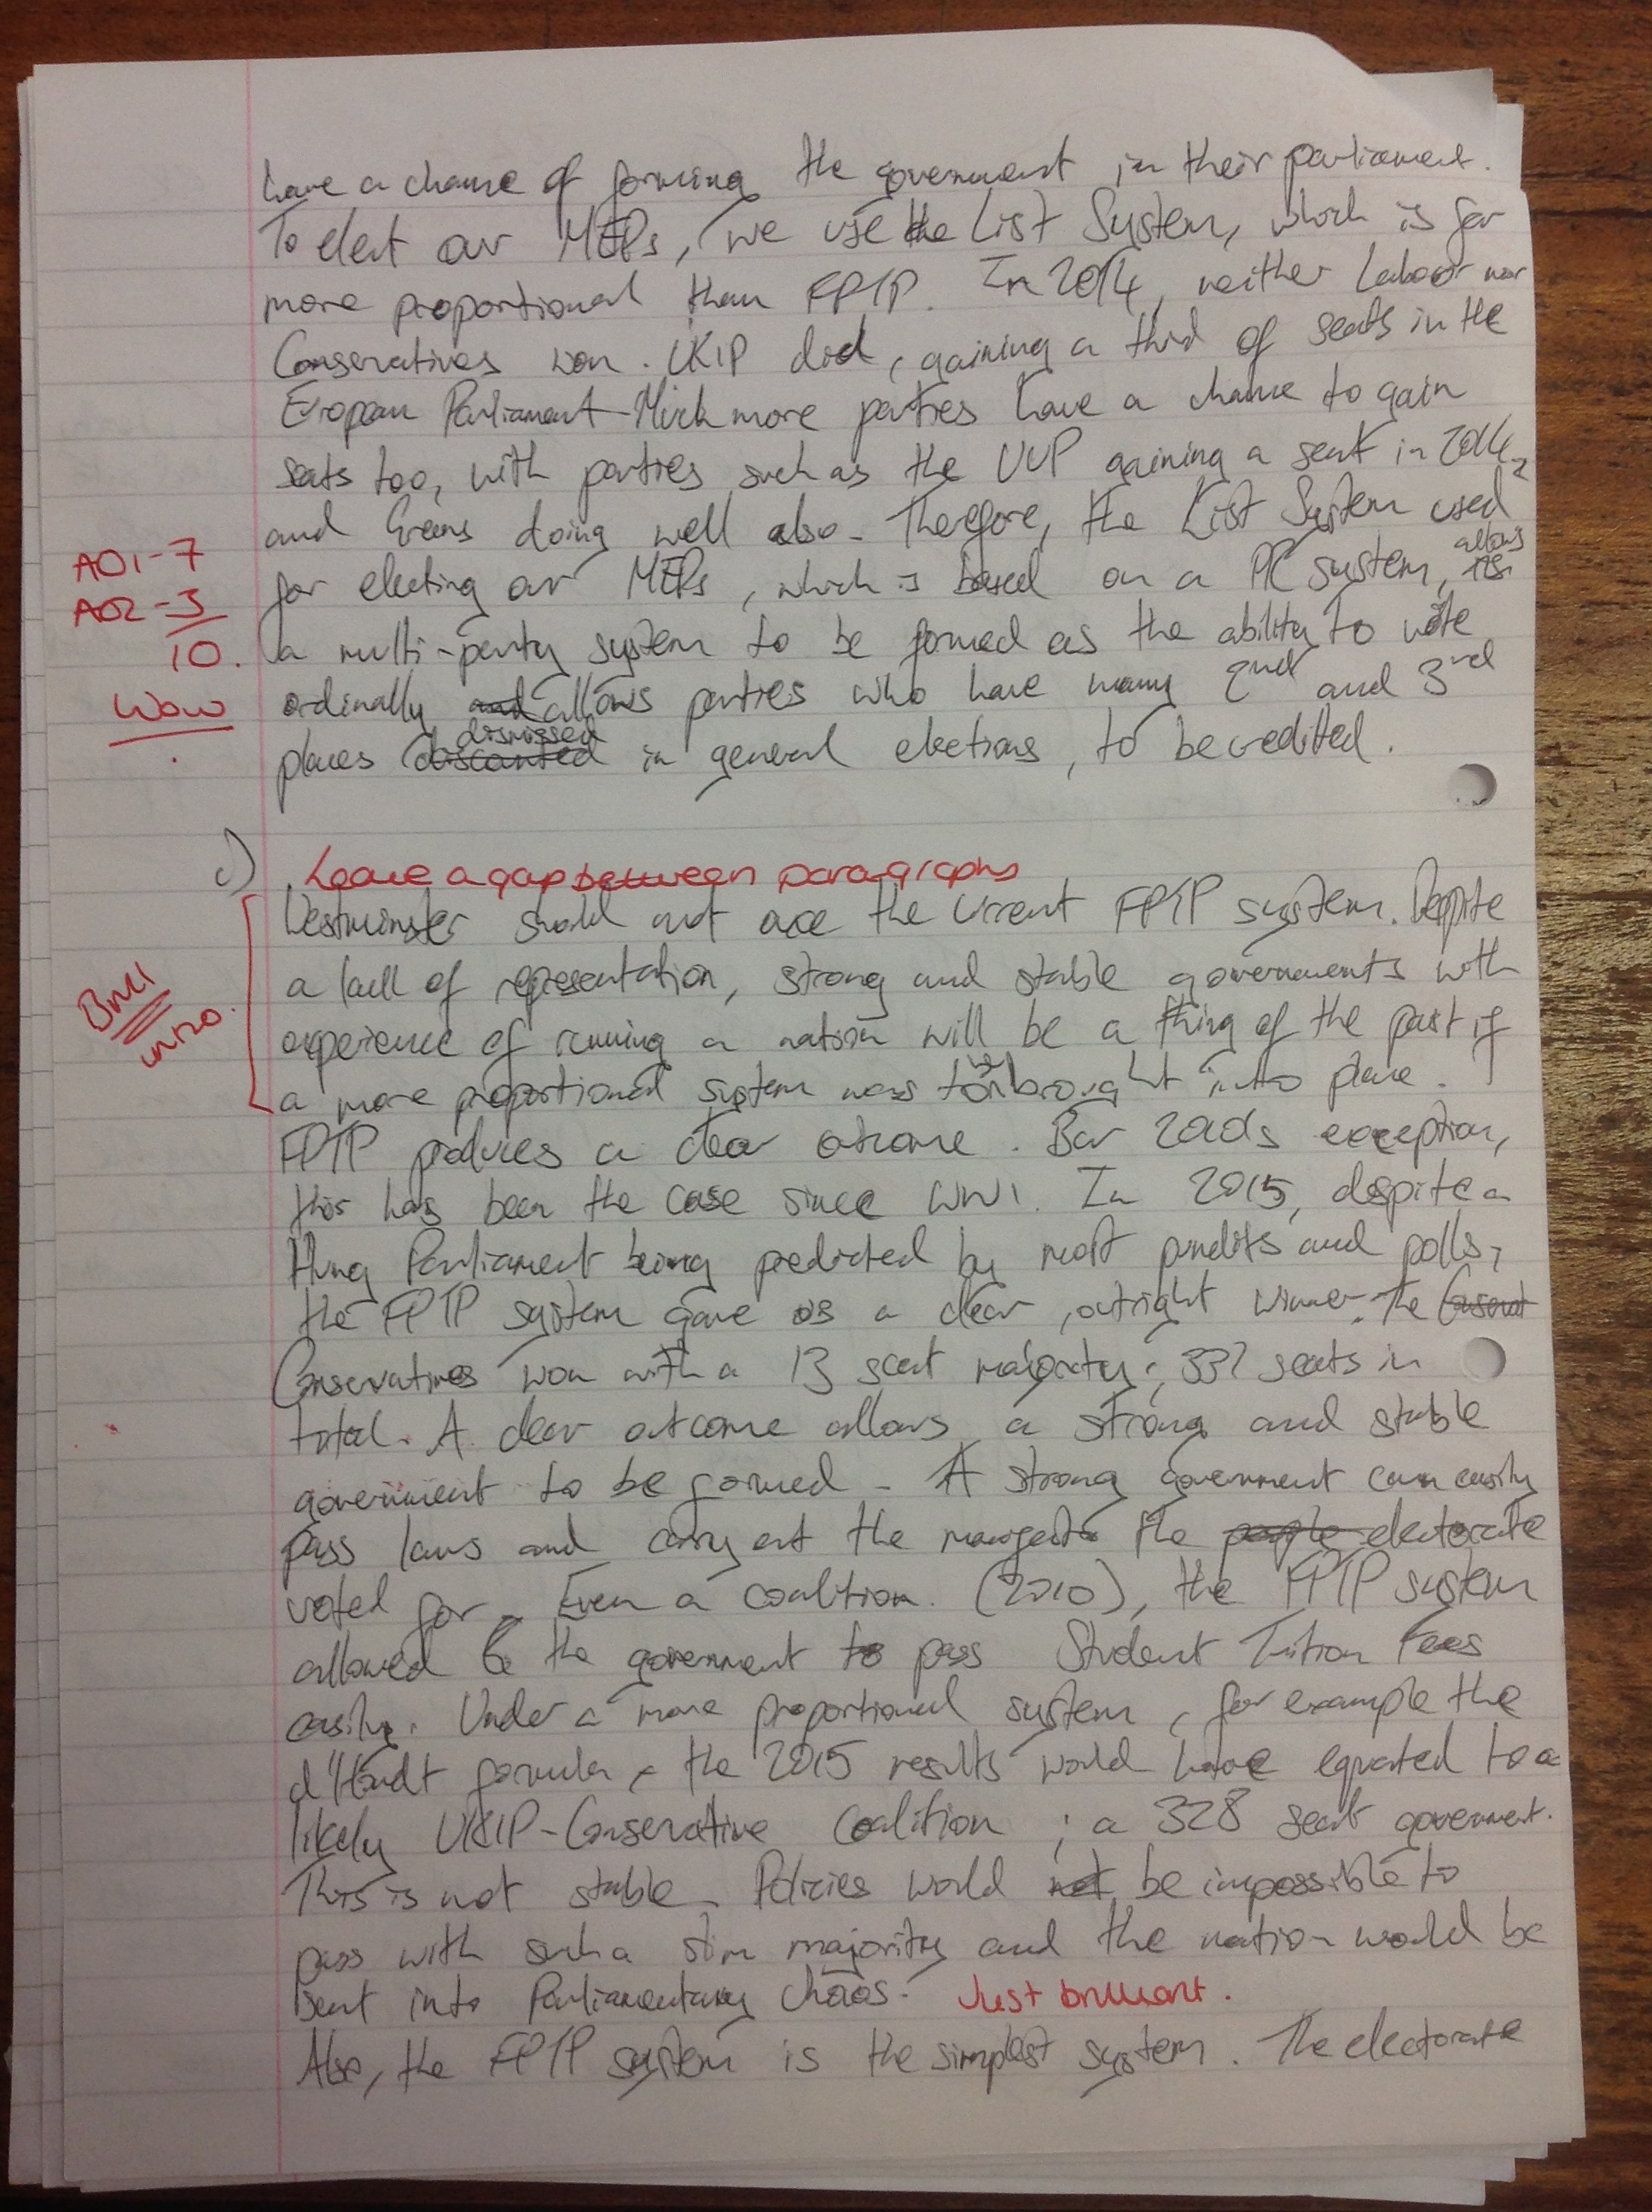 have a chance of forming the government in their parliament.
To elect our MEPs, we use the List System, which is far
more proportional than FPTP. In 2014, neither Labour nor
Conservatives won. UKIP did, gaining a third of seats in the
European Parliament. Much more parties have a chance to gain
seats too, with parties such as the UUP gaining a seat in 2014,
and Greens doing well also. Therefore, the List System used
AO1-7
for electing our MEPs, which is based on a PR system, allows
AO2-3
10.
a multi-party system to be formed as the ability to vote
Wow
ordinally and allows parties who have many 2nd and 3rd
places discounted dismissed in general elections, to be credited.
c) Leave a gap between paragraphs
Westminster should not axe the current FPTP system. Despite
a lack of representation, strong and stable governments with
Brill
intro.
experience of running a nation will be a thing of the past if
a more proportional system was to be brought into place.
FPTP produces a clear outcome. Bar 2010s exception,
this has been the case since WW1. In 2015, despite a
Hung Parliament being predicted by most pundits and polls,
the FPTP system gave us a clear, outright winner. The Conservat
Conservatives won with a 13 seat majority; 331 seats in
total. A clear outcome allows a strong and stable
government to be formed. A strong government can easily
pass laws and carry out the manifesto the people electorate
voted for. Even a coalition (2010), the FPTP system
allowed the government to pass Student Tuition Fees
easily. Under a more proportional system, for example the
d'Hondt formula, the 2015 results would have equated to a
likely UKIP-Conservative Coalition; a 328 seat government.
This is not stable. Policies would not be impossible to
pass with such a slim majority and the nation would be
sent into Parliamentary chaos. Just brilliant.
Also, the FPTP system is the simplest system. The electorate